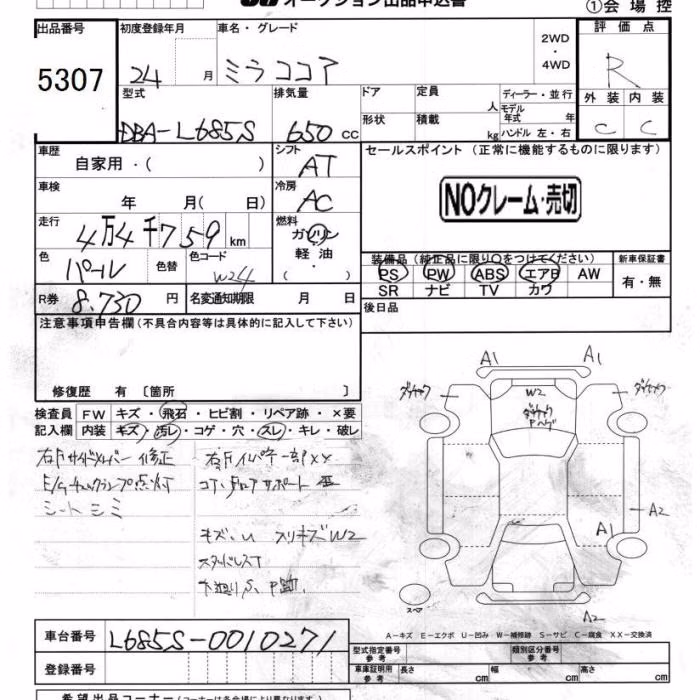 オークション出品申込書
①会場控
出品番号
5307
初度登録年月
24 月
車名・グレード
ミラココア
2WD
・
4WD
評価点
R
外装 内装
C C
型式
DBA-L685S
排気量
650 cc
ドア
形状
定員
人
積載
kg
ディーラー・並行
モデル
年式 年
ハンドル 左・右
車歴
自家用・( )
シフト
AT
車検
年 月( 日)
冷房
AC
走行
4万4千759 km
燃料
ガソリン
・
軽油
( )
色
パール
色替
色コード
W24
R券 8,730 円
名変通知期限 月 日
セールスポイント (正常に機能するものに限ります)
NOクレーム・売切
装備品 (純正品に限り○をつけてください)
PS PW ABS エアB AW
SR ナビ TV カワ
新車保証書
有・無
後日品
注意事項申告欄(不具合内容等は具体的に記入して下さい)
修復歴 有 〔箇所 〕
検査員
記入欄
FW キズ・飛石・ヒビ割・リペア跡・×要
内装 キズ・汚レ・コゲ・穴・スレ・キレ・破レ
右Fサイドメンバー 修正
E/Gチェックランプ点灯
シート シミ
右Fインパネ一部××
コア・ロアサポート 歪
キズ、U スリキズW2
スタッドレス
下廻りS、P跡
A1
A1
W2
A2
A1
A2
スペア
A-キズ E-エクボ U-凹み W-補修跡 S-サビ C-腐食 XX-交換済
車台番号 L685S-0010271
登録番号
型式指定番号
参考
類別区分番号
参考
車庫証明用
参考
長さ cm
幅 cm
高さ cm
希望出品コーナー(コーナーは各会場により異なります)